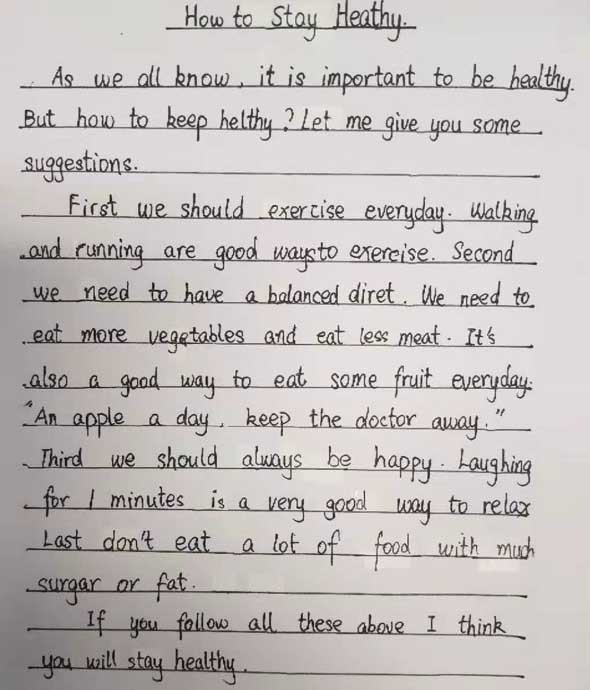 How to Stay Heathy.
As we all know, it is important to be healthy.
But how to keep helthy? Let me give you some
suggestions.
First we should exercise everyday. Walking
and running are good ways to exereise. Second
we need to have a balanced diret. We need to
eat more vegetables and eat less meat. It's
also a good way to eat some fruit everyday.
"An apple a day, keep the doctor away."
Third we should always be happy. Laughing
for 1 minutes is a very good way to relax
Last don't eat a lot of food with much
surgar or fat.
If you follow all these above I think
you will stay healthy.